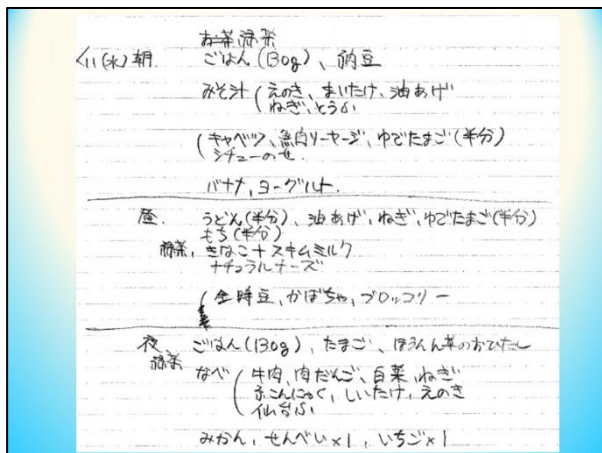 お茶 緑茶
11(水) 朝. ごはん(130g)、納豆
みそ汁(えのき、まいたけ、油あげ
ねぎ、とうふ
(キャベツ、魚肉ソーセージ、ゆでたまご(半分)
シチューのせ.
バナナ、ヨーグルト.
昼. うどん(半分)、油あげ、ねぎ、ゆでたまご(半分)
もち(半分)
緑茶, きなこ+スキムミルク
ナチュラルチーズ
(金時豆、かぼちゃ、ブロッコリー
夜 ごはん(130g)、たまご、ほうれん草のおひたし
緑茶
なべ(牛肉、肉だんご、白菜、ねぎ
こんにゃく、しいたけ、えのき
仙台ふ
みかん、せんべい×1、いちご×1